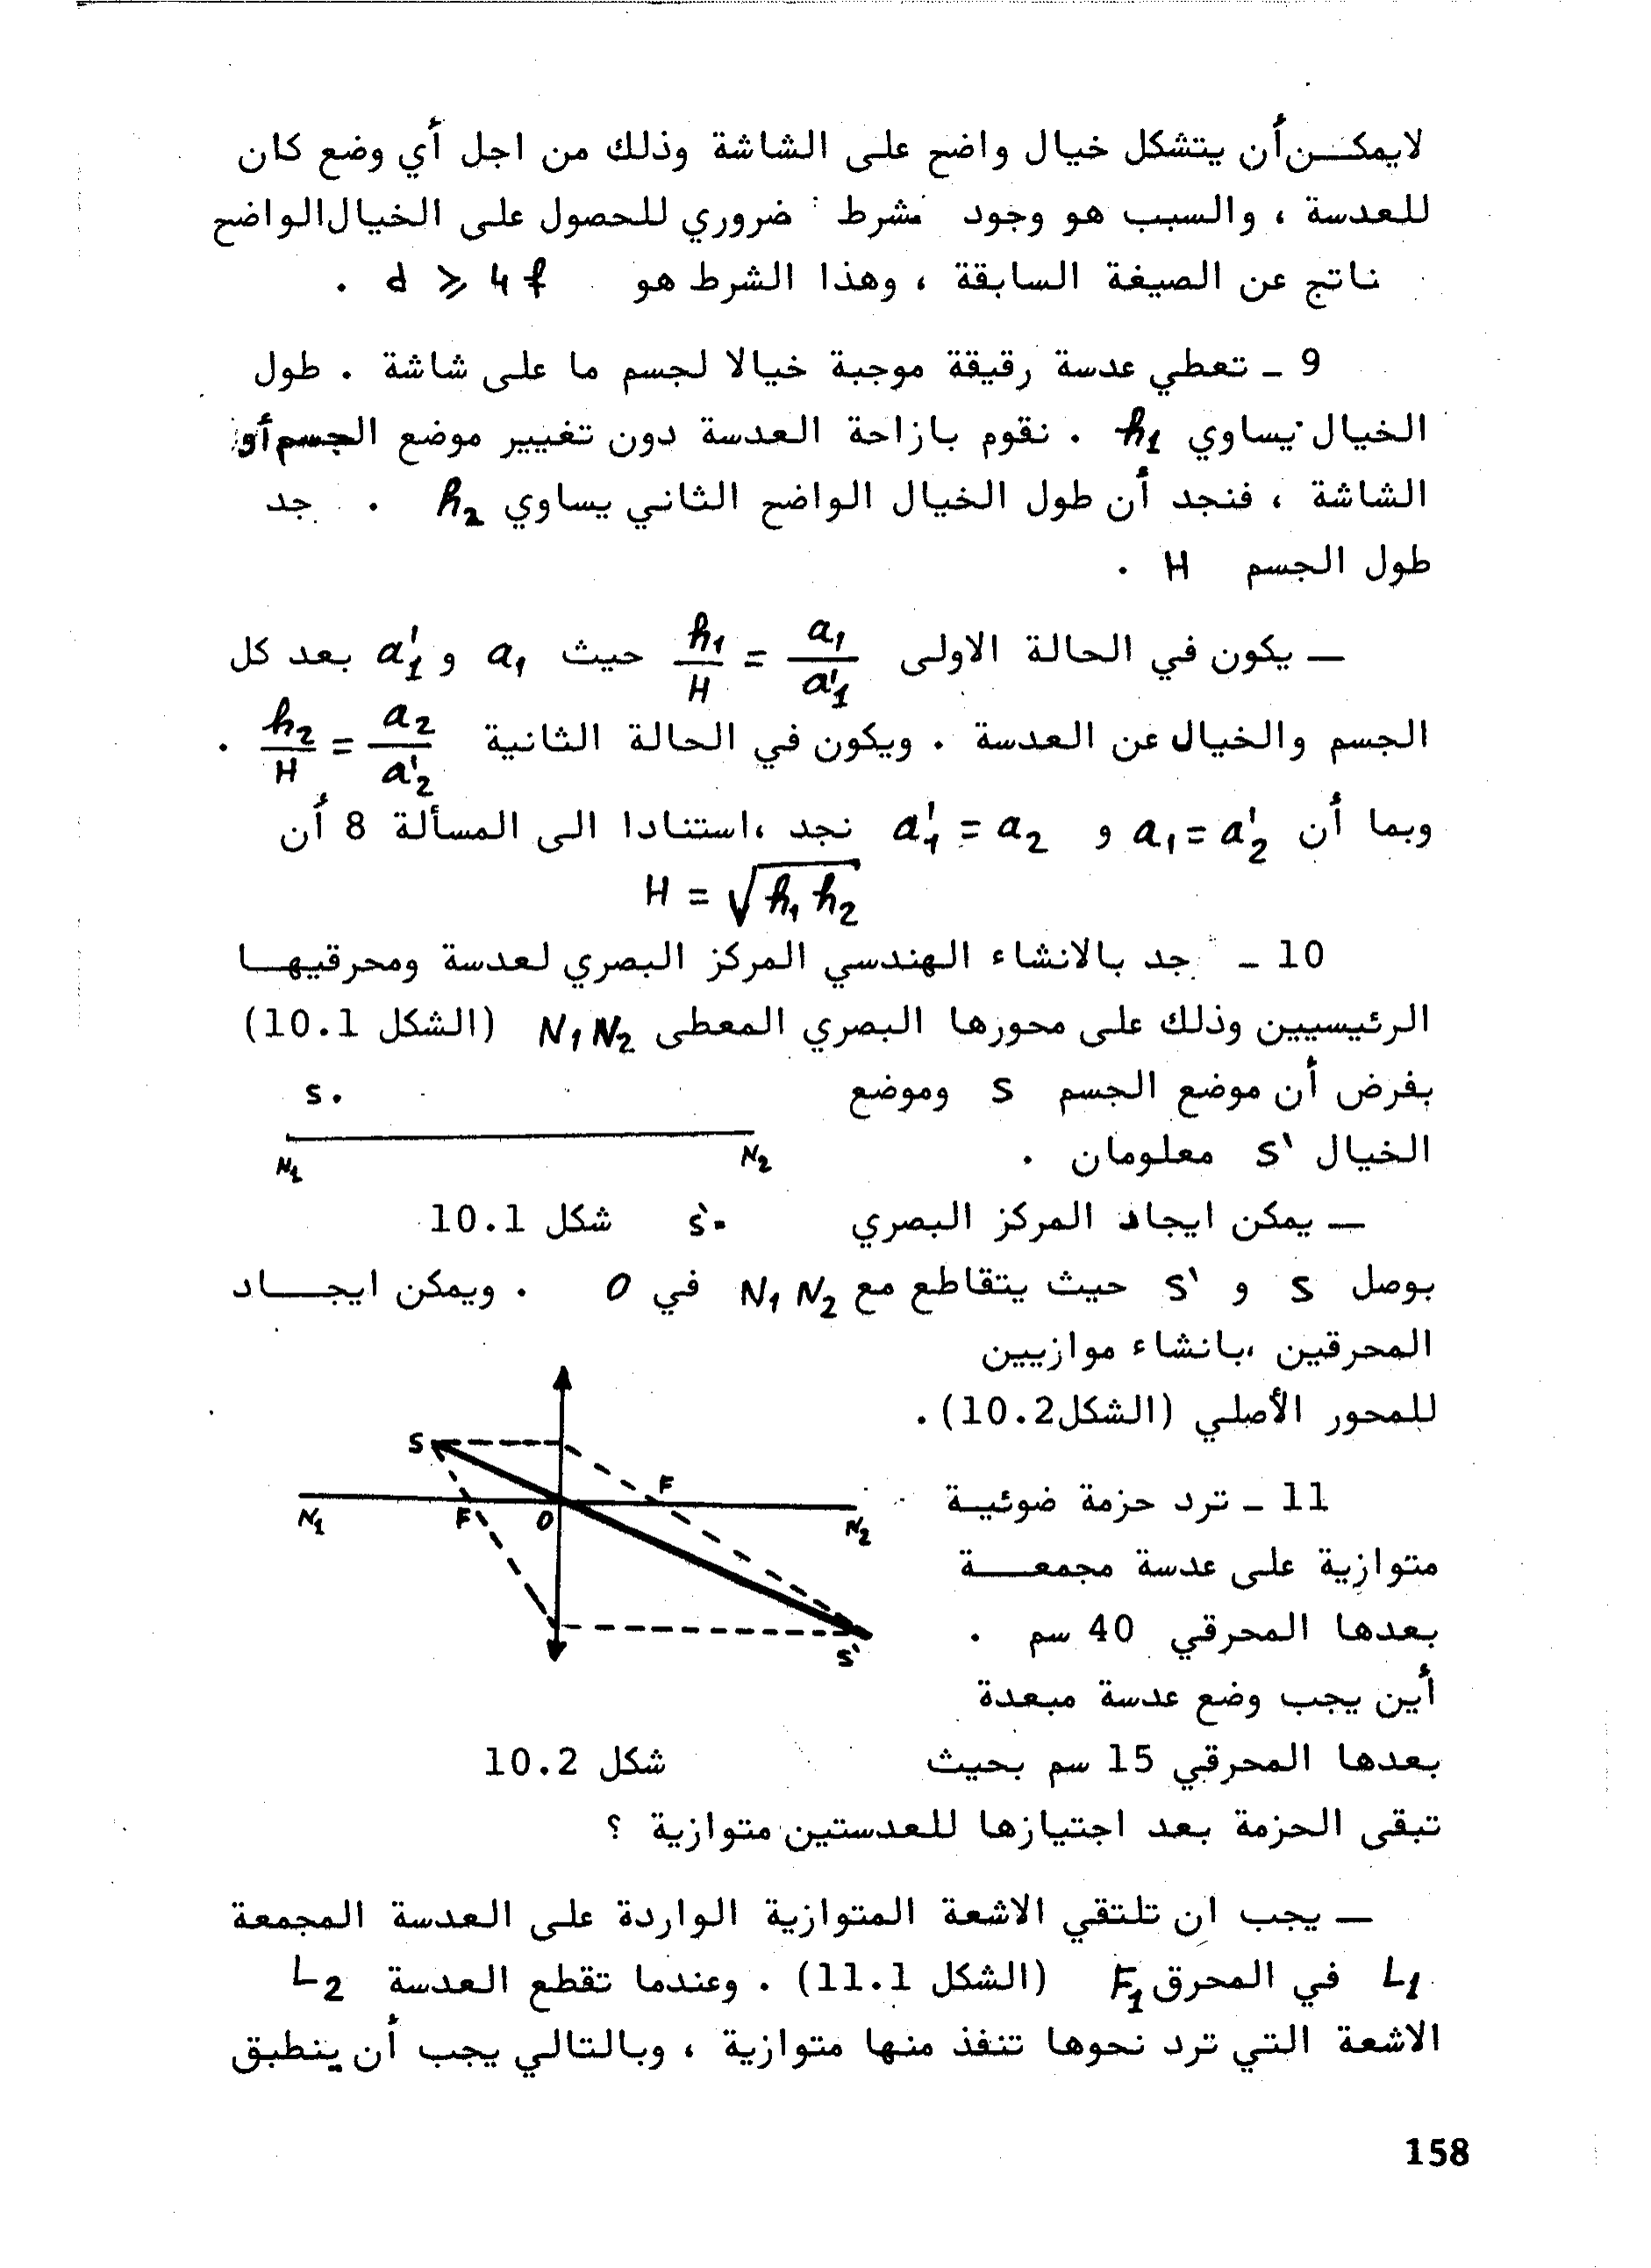 لايمكــن أن يتشكل خيال واضح على الشاشة وذلك من اجل أي وضع كان
للعدسة ، والسبب هو وجود شرط ضروري للحصول على الخيال الواضح
ناتج عن الصيغة السابقة ، وهذا الشرط هو d ⩾ 4 f .
9 - تعطي عدسة رقيقة موجبة خيالا لجسم ما على شاشة . طول
الخيال يساوي h1 . نقوم بازاحة العدسة دون تغيير موضع الجسم أو
الشاشة ، فنجد أن طول الخيال الواضح الثاني يساوي h2 . جد
طول الجسم H .
— يكون في الحالة الاولى h1/H = a1/a'1 حيث a1 و a'1 بعد كل
الجسم والخيال عن العدسة . ويكون في الحالة الثانية h2/H = a2/a'2 .
وبما أن a1 = a'2 و a'1 = a2 نجد ،استنادا الى المسألة 8 أن
H = √h1 h2
10 - جد بالانشاء الهندسي المركز البصري لعدسة ومحرقيهــا
الرئيسيين وذلك على محورها البصري المعطى N1 N2 (الشكل 10.1)
بفرض أن موضع الجسم S وموضع
الخيال S' معلومان .
S.
N1 N2
S'. شكل 10.1
— يمكن ايجاد المركز البصري
بوصل S و S' حيث يتقاطع مع N1 N2 في O . ويمكن ايجــاد
المحرقين ،بانشاء موازيين
للمحور الأصلي (الشكل10.2).
S F
N1 F O N2
S'
شكل 10.2
11 - ترد حزمة ضوئيـة
متوازية على عدسة مجمعــة
بعدها المحرقي 40 سم .
أين يجب وضع عدسة مبعدة
بعدها المحرقي 15 سم بحيث
تبقى الحزمة بعد اجتيازها للعدستين متوازية ؟
— يجب ان تلتقي الاشعة المتوازية الواردة على العدسة المجمعة
L1 في المحرق F1 (الشكل 11.1) . وعندما تقطع العدسة L2
الاشعة التي ترد نحوها تنفذ منها متوازية ، وبالتالي يجب أن ينطبق
158